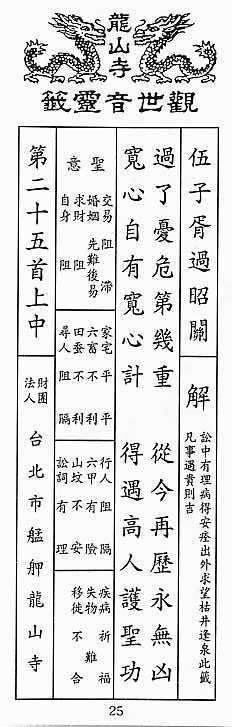 龍山寺
觀世音靈籤
伍子胥過昭關
解
訟中有理病得安痊出外求望枯井逢泉此籤
凡事遇貴則吉
過了憂危第幾重 從今再歷永無凶
寬心自有寬心計 得遇高人護聖功
聖意
交易 阻滯
婚姻 先難後易
求財 阻
自身 阻
家宅 不平
六畜 不利
田蚕 不利
尋人 阻隔
行人 阻隔
六甲 有險
山墳 不安
訟詞 有理
疾病 祈福
失物 難
移徙 不合
第二十五首上中
財團法人 台北市艋舺龍山寺
25